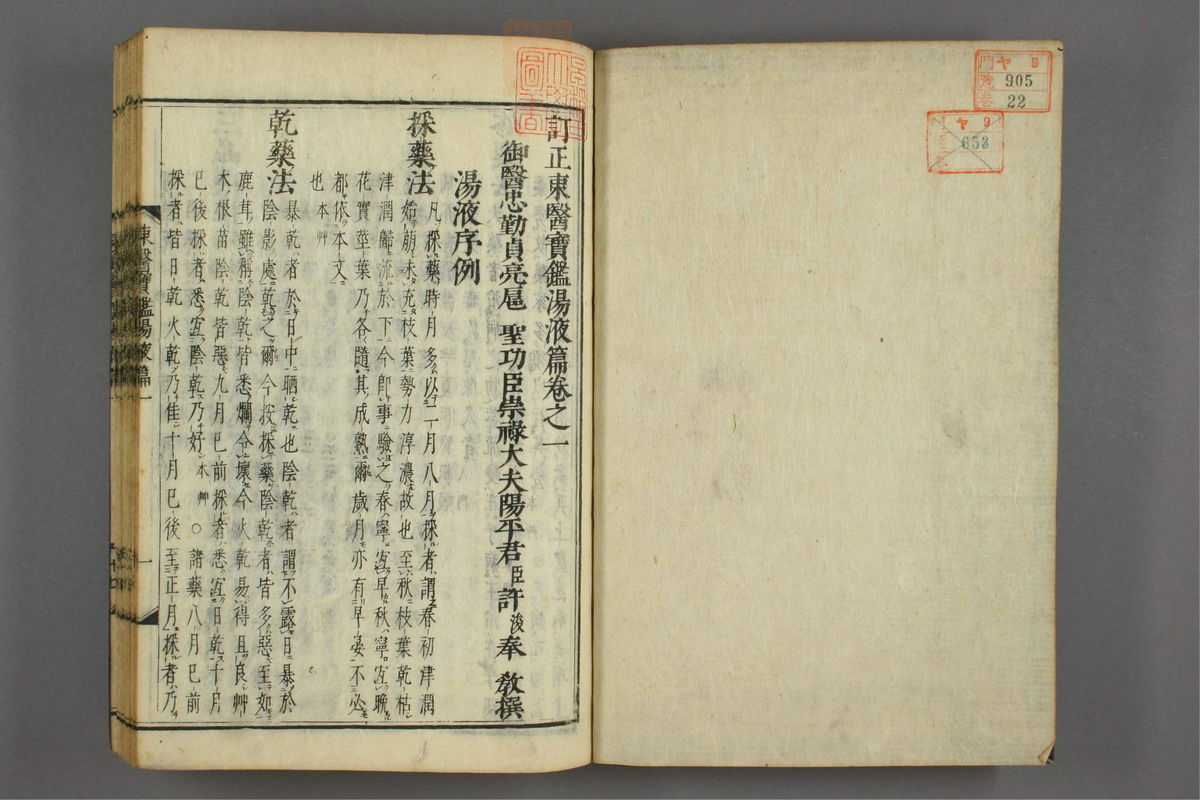 門 ヤ 9
號 905
卷 22
ヤ 9
653
訂正東醫寶鑑湯液篇卷之一
御醫忠勤貞亮扈 聖功臣崇祿大夫陽平君臣許浚奉 教撰
湯液序例
採藥法 凡採藥時月多以二月八月採者謂春初津潤
始萠未充枝葉勢力淳濃故也至秋枝葉乾枯
津潤歸流於下今卽事驗之春寧宜早秋寧宜晩
花實莖葉乃各隨其成熟爾歲月亦有早晏不必
都依本文
也本艸
乾藥法 暴乾者於日中晒乾也陰乾者謂不露日暴於
陰影處乾之爾今按採藥陰乾者皆多惡至如
鹿茸雖稱陰乾皆悉爛令壞今火乾易得且良艸
木根苗陰乾皆惡九月巳前採者悉宜日乾十月
巳後採者悉宜陰乾乃好本艸○諸藥八月巳前
採者皆日乾火乾乃佳十月巳後至正月採者乃
東醫寶鑑湯液篇一
一